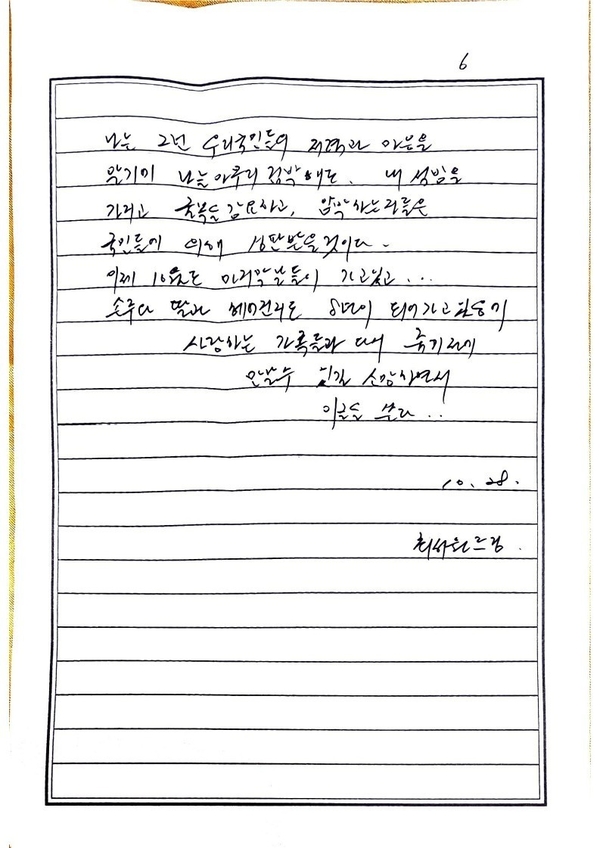 6
나는 그런 우리국민들의 저력과 마음을
알기에 나는 아무리 겁박해도. 내
가리고 굴복을 강요하고, 압박하는 저들은
국민들에 의해 심판받을것이다.
이제 10월도 마지막날들이 가고있고...
손주와 딸과 헤어진지도 8년이 되어가고
사랑하는 가족들과 다시 죽기전에
만날수 있길 소망하면서
이글을 쓴다..
10. 28.
최서원드림.